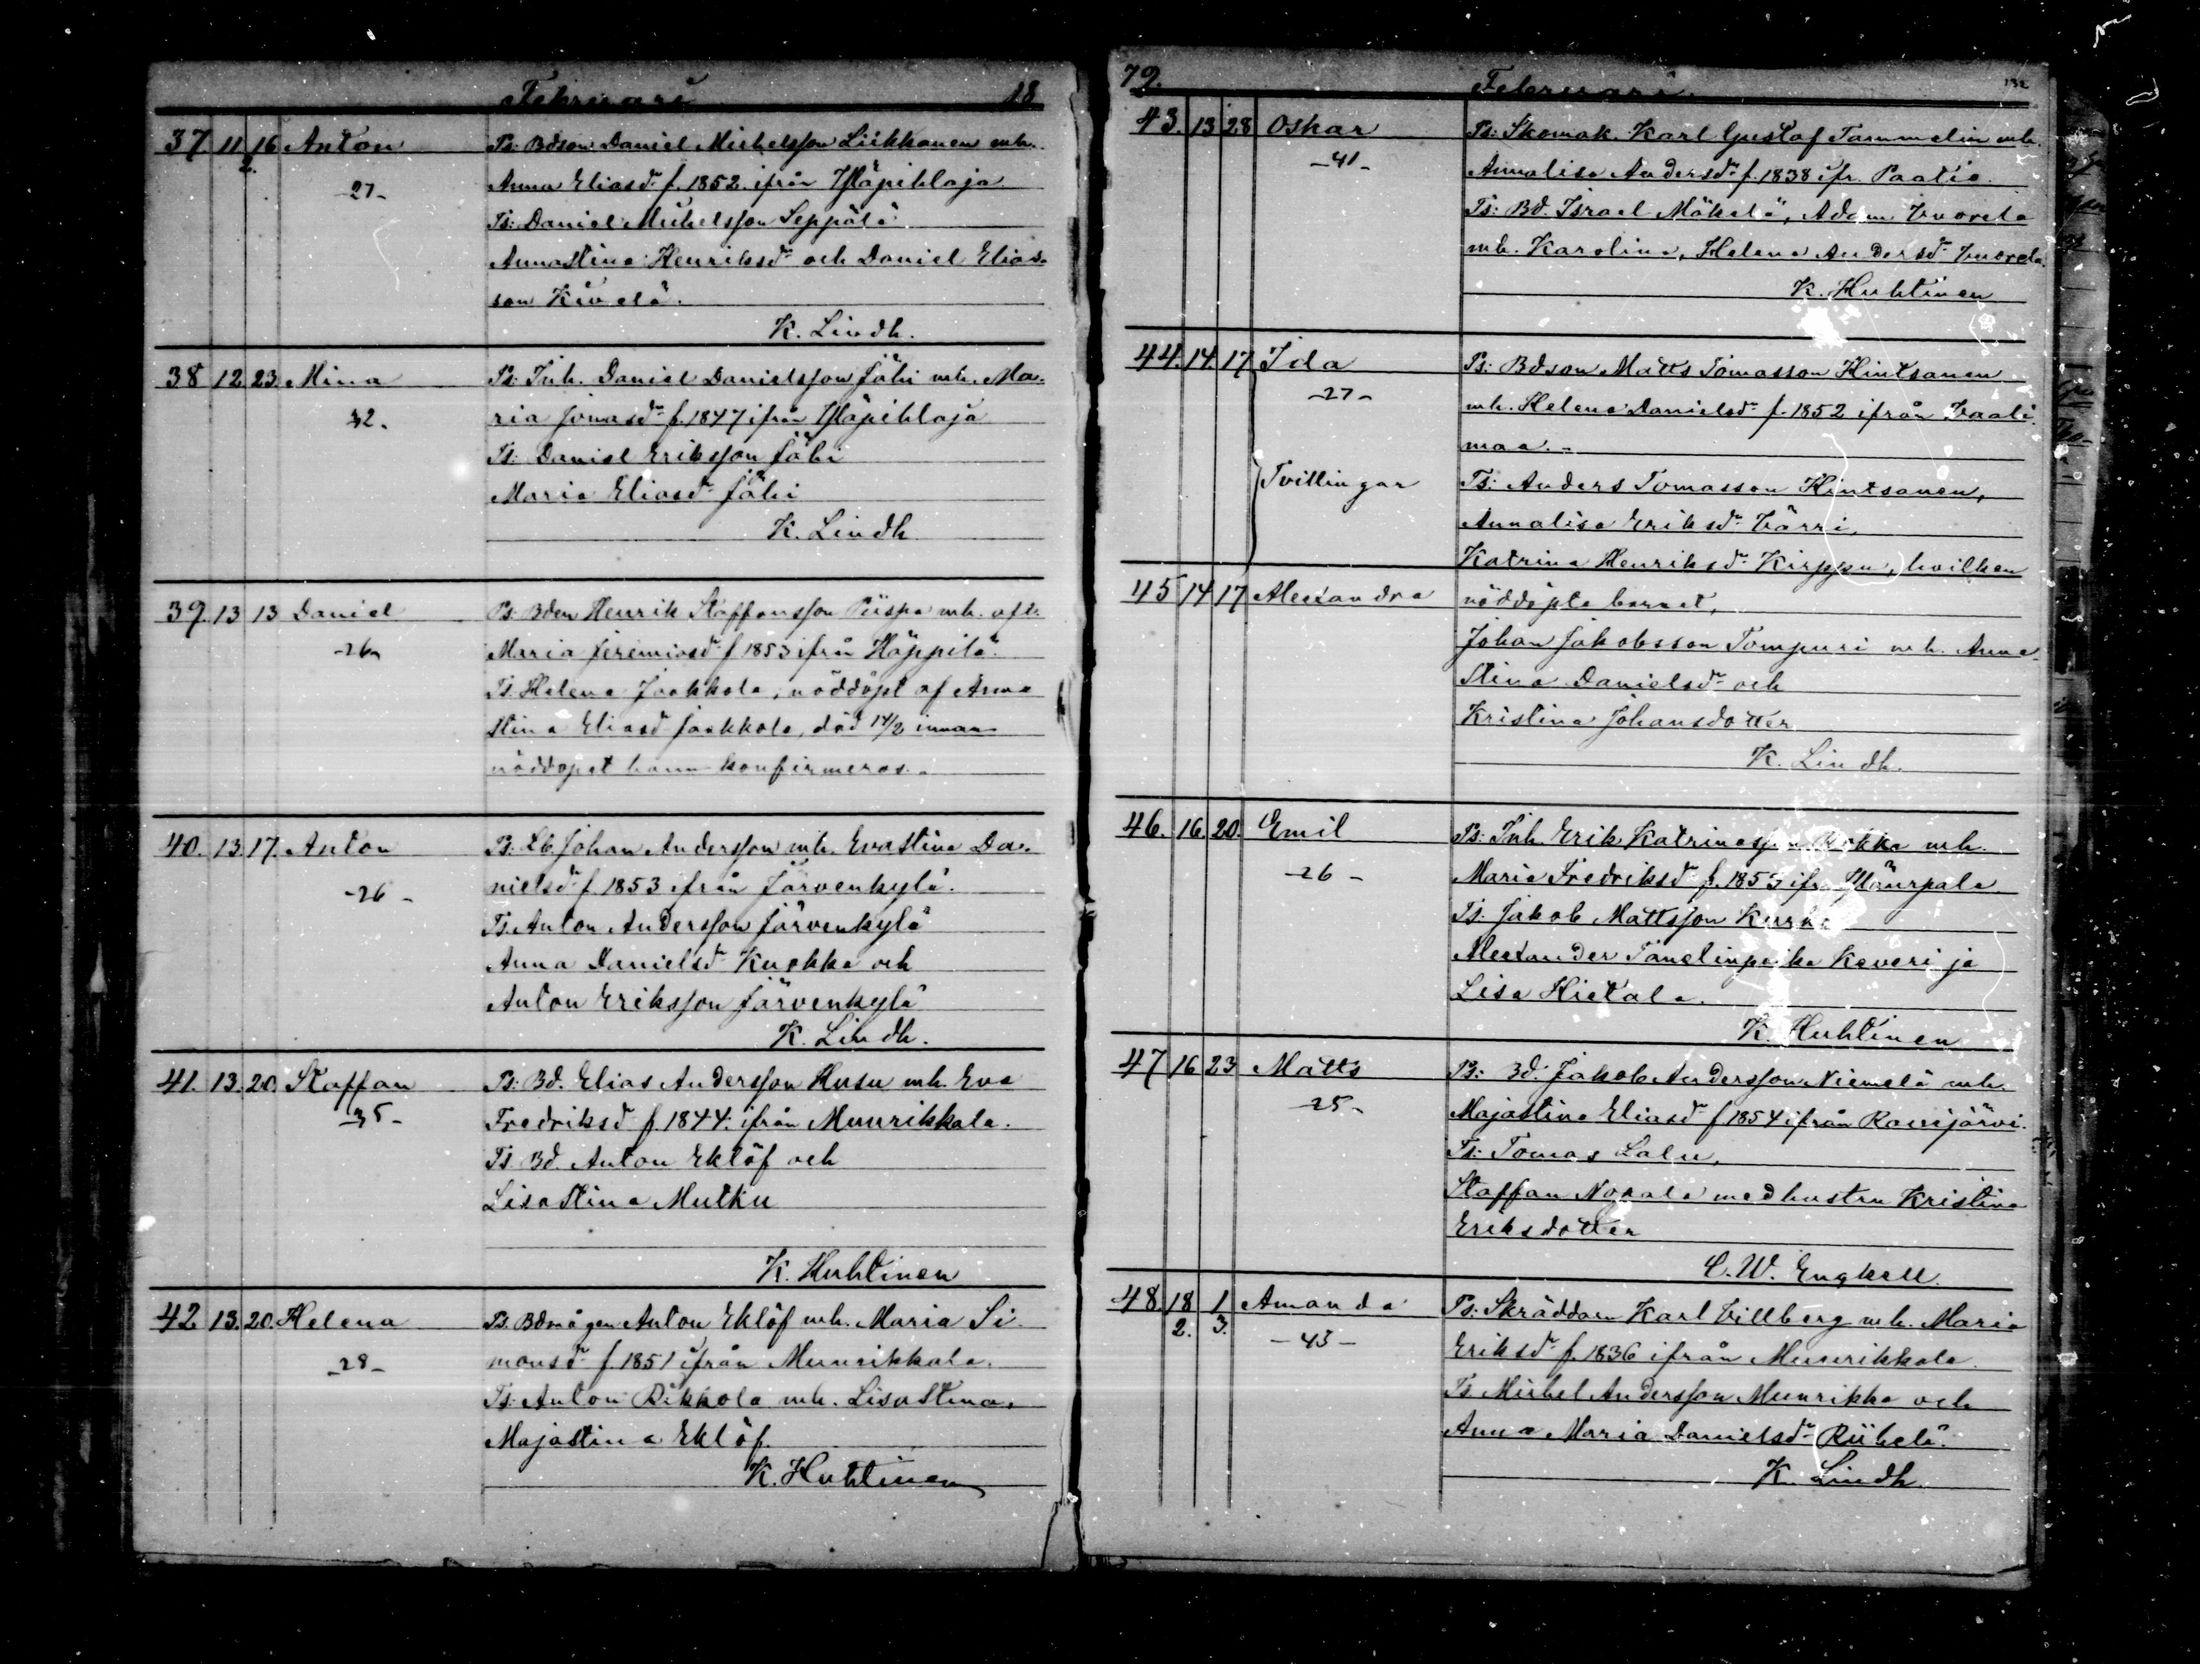 Februari 18
37. 11 2. 16 Anton Ps: Bdson Daniel Michelsson Liikkanen mh.
-27- Anna Eliasdr f. 1852 ifrån Yläpihlaja
Ts: Daniel Michelsson Seppälä
Annastina Henriksdr och Daniel Elias-
son Kivelä.
K. Lindh.
38 12 23 Mina Ps: Inh. Daniel Danielsson Jähi mh. Ma-
32. ria Jonasdr f. 1847 ifrån Yläpihlaja
Ts: Daniel Eriksson Jähi
Maria Eliasdr Jähi
K. Lindh.
39. 13 13 Daniel Ps: Bden Henrik Staffansson Piispa mh. afl.
-26- Maria Jeremiasdr f 1853 ifrån Häppilä.
Ts. Helena Jaakkola, nöddöpt af Anna
Stina Eliasd Jaakkola, död 14/2 innan
nöddopet hann konfirmeras.
40. 13. 17. Anton Ps. Lb Johan Andersson mh. Evastina Da-
-26- nielsdr f 1853 ifrån Järvenkylä.
Ts. Anton Andersson Järvenkylä
Anna Danielsdr Kuokka och
Anton Eriksson Järvenkylä
K. Lindh.
41. 13. 20. Staffan Ps: Bd. Elias Andersson Husu mh. Eva
35- Fredriksdr f. 1844. ifrån Muurikkala.
Ts Bd. Anton Eklöf och
Lisastina Mutku
K. Huhtinen
42 13. 20. Helena Ps. Bdmågen Anton Eklöf mh. Maria Si-
-28- monsdr f. 1851 ifrån Muurikkala.
Ts: Anton Rikkola mh. Lisastina,
Majastina Eklöf.
K. Huhtinen
79. Februari. 132
43. 13 28 Oskar Ps: Skomak. Karl Gustaf Tammelin mh.
-41- Annalisa Andersdr f. 1838 ifr. Paatio.
Ts: Bd. Israel Mäkelä, Adam Vuorela
mh. Karolina, Helena Andersdr Vuorela.
K. Huhtinen
44. 14. 17 Ida Ps: Bdson Matts Tomasson Hintsanen
-27- mh. Helena Danielsdr f. 1852 ifrån Vaali-
maa.-
Tvillingar Ts: Anders Tomasson Hintsanen,
Annalisa Eriksdr Värri,
Katrina Henriksdr Kirppu, hvilken
45 14 17 Alexandra nöddöpte barnet,
Johan Jakobsson Tompuri mh. Anna
Stina Danielsdr och
Kristina Johansdotter
K. Lindh.
46. 16. 20. Emil Ps: Inh. Erik Katrinasson Rokka mh.
-26- Maria Fredriksdr f. 1853 ifr.
Ts: Jakob Mattsson
Alexander Tanelinpoika Kaveri ja
Lisa Hietala.
K. Huhtinen
47 16 23 Matts Ps: Bd. Jakob Andersson Niemelä mh.
-25- Majastina Eliasdr f 1854 ifrån Ravijärvi.
Ts: Tomas Lalu,
Staffan Nopala med hustru Kristina
Eriksdotter
C. W. Engkell.
48. 18 2. 1 3. Amanda Ps: Skräddarn Karl Villberg mh. Maria
-43- Eriksdr f. 1836 ifrån Muurikkala.
Ts Michel Andersson Muurikka och
Anna Maria Danielsdr Riihelä.
K. Lindh.